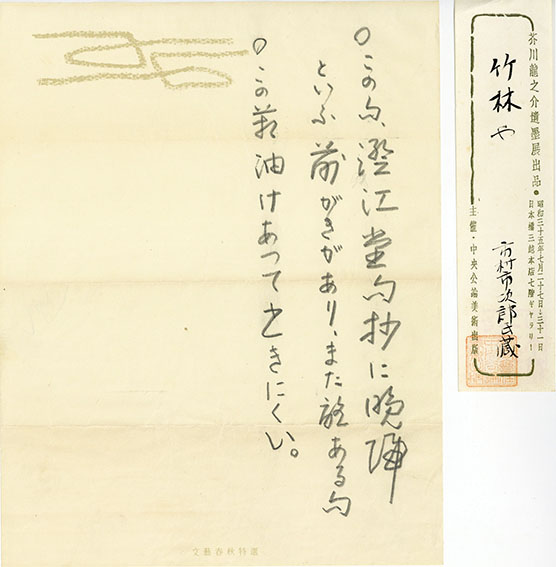 〇この句、澄江堂句抄に晩帰
といふ前がきがあり、また註ある句
〇この花油けあつて書きにくい。
文藝春秋特選
芥川龍之介遺墨展出品・昭和三十五年七月二十七日-三十一日
日本橋三越本店七階ギャラリー
竹林や
市村市次郎氏蔵
主催・中央公論美術出版